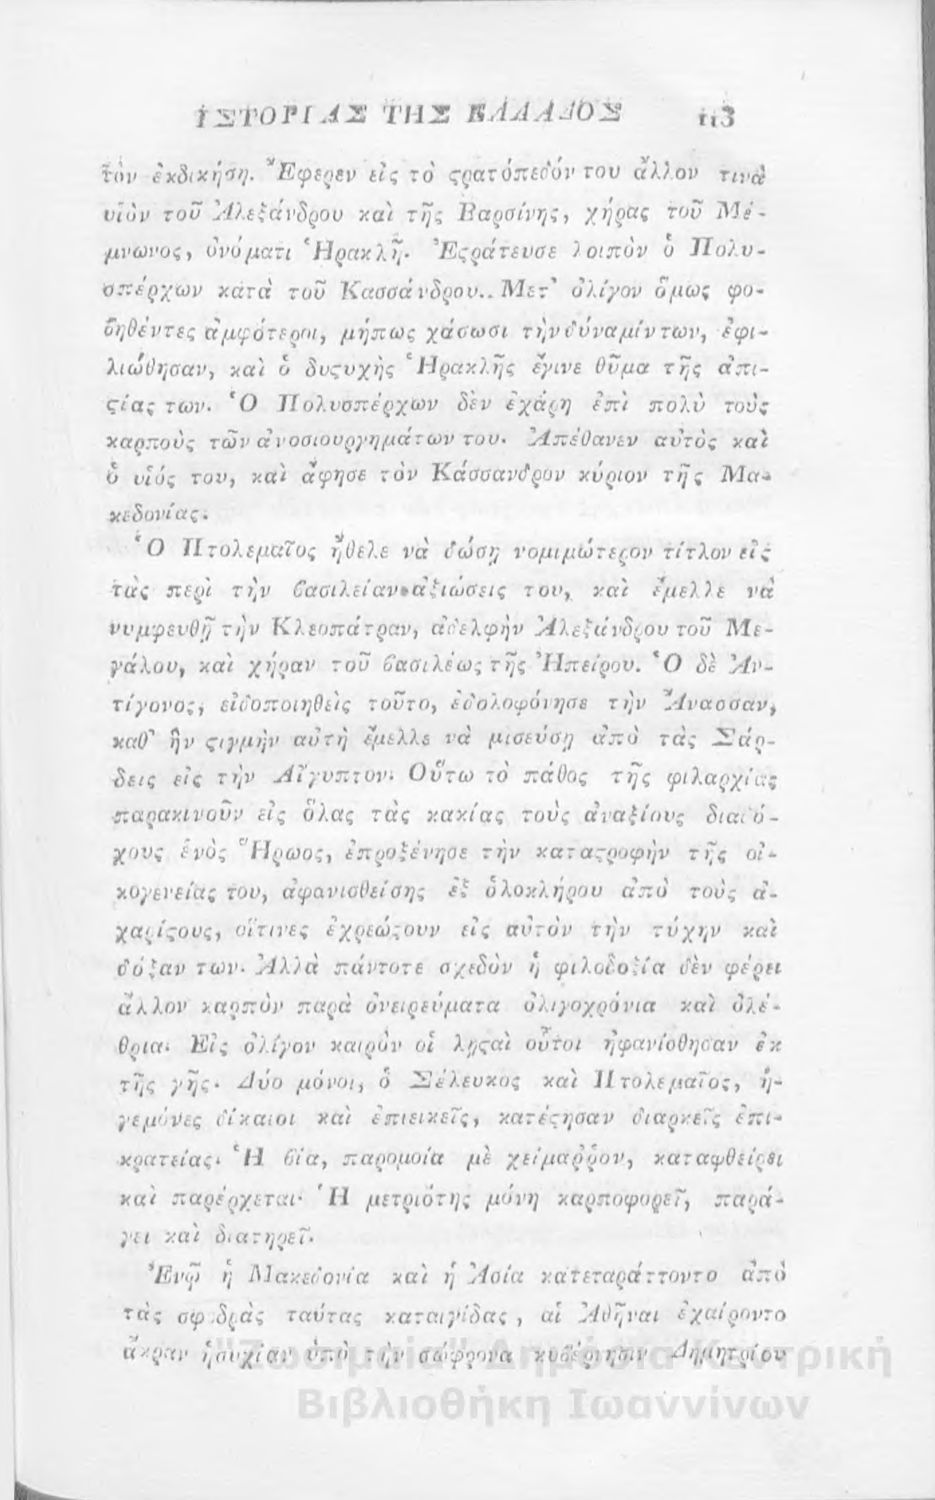 ΙΣΤΟΡΙΑΣ ΤΗΣ ΕΛΛΑΔΟΣ 113
τὸν ἐκδικήσῃ. Ἔφερεν εἰς τὸ ϛρατόπεδόν του ἄλλον τινὰ
υἱὸν τοῦ Ἀλεξάνδρου καὶ τῆς Βαρσίνης, χήρας τοῦ Μέ-
μνωνος, ὀνόματι Ἡρακλῆ. Ἐϛράτευσε λοιπὸν ὁ Πολυ-
σπέρχων κατὰ τοῦ Κασσάνδρου.. Μετ' ὀλίγον ὅμως φο-
ϐηθέντες ἀμφότεροι, μήπως χάσωσι τὴν δύναμίν των, ἐφι-
λιώθησαν, καὶ ὁ δυϛυχὴς Ἡρακλῆς ἔγινε θῦμα τῆς ἀπι-
ϛίας των. Ὁ Πολυσπέρχων δὲν ἐχάρη ἐπὶ πολὺ τοὺς
καρποὺς τῶν ἀνοσιουργημάτων του. Ἀπέθανεν αὐτὸς καὶ
ὁ υἱός του, καὶ ἄφησε τὸν Κάσσανδρον κύριον τῆς Μα-
κεδονίας.
Ὁ Πτολεμαῖος ἤθελε νὰ δώσῃ νομιμώτερον τίτλον εἰς
τὰς περὶ τὴν ϐασιλείαν ἀξιώσεις του, καὶ ἔμελλε νὰ
νυμφευθῇ τὴν Κλεοπάτραν, ἀδελφὴν Ἀλεξάνδρου τοῦ Με-
γάλου, καὶ χήραν τοῦ ϐασιλέως τῆς Ἠπείρου. Ὁ δὲ Ἀν-
τίγονος, εἰδοποιηθεὶς τοῦτο, ἐδολοφόνησε τὴν Ἄνασσαν,
καθ' ἣν ϛιγμὴν αὐτὴ ἔμελλε νὰ μισεύσῃ ἀπὸ τὰς Σάρ-
δεις εἰς τὴν Αἴγυπτον. Οὕτω τὸ πάθος τῆς φιλαρχίας
παρακινοῦν εἰς ὅλας τὰς κακίας τοὺς ἀναξίους διαδό-
χους ἑνὸς Ἥρωος, ἐπροξένησε τὴν καταϛροφὴν τῆς οἰ-
κογενείας του, ἀφανισθείσης ἐξ ὁλοκλήρου ἀπὸ τοὺς ἀ-
χαρίϛους, οἵτινες ἐχρεώϛουν εἰς αὐτὸν τὴν τύχην καὶ
δόξαν των. Ἀλλὰ πάντοτε σχεδὸν ἡ φιλοδοξία δὲν φέρει
ἄλλον καρπὸν παρὰ ὀνειρεύματα ὀλιγοχρόνια καὶ ὀλέ-
θρια. Εἰς ὀλίγον καιρὸν οἱ λῃϛαὶ οὗτοι ἠφανίσθησαν ἐκ
τῆς γῆς. Δύο μόνοι, ὁ Σέλευκος καὶ Πτολεμαῖος, ἡ-
γεμόνες δίκαιοι καὶ ἐπιεικεῖς, κατέϛησαν διαρκεῖς ἐπι-
κρατείας. Ἡ ϐία, παρομοία μὲ χείμαῤῥον, καταφθείρει
καὶ παρέρχεται. Ἡ μετριότης μόνη καρποφορεῖ, παρά-
γει καὶ διατηρεῖ.
Ἐνῷ ἡ Μακεδονία καὶ ἡ Ἀσία κατεταράττοντο ἀπὸ
τὰς σφοδρὰς ταύτας καταιγίδας, αἱ Ἀθῆναι ἐχαίροντο
ἄκραν ἡσυχίαν ὑπὸ τὴν σώφρονα κυϐέρνησιν Δημητρίου
"Ζωσιμαία" Δημόσια Κεντρική
Βιβλιοθήκη Ιωαννίνων